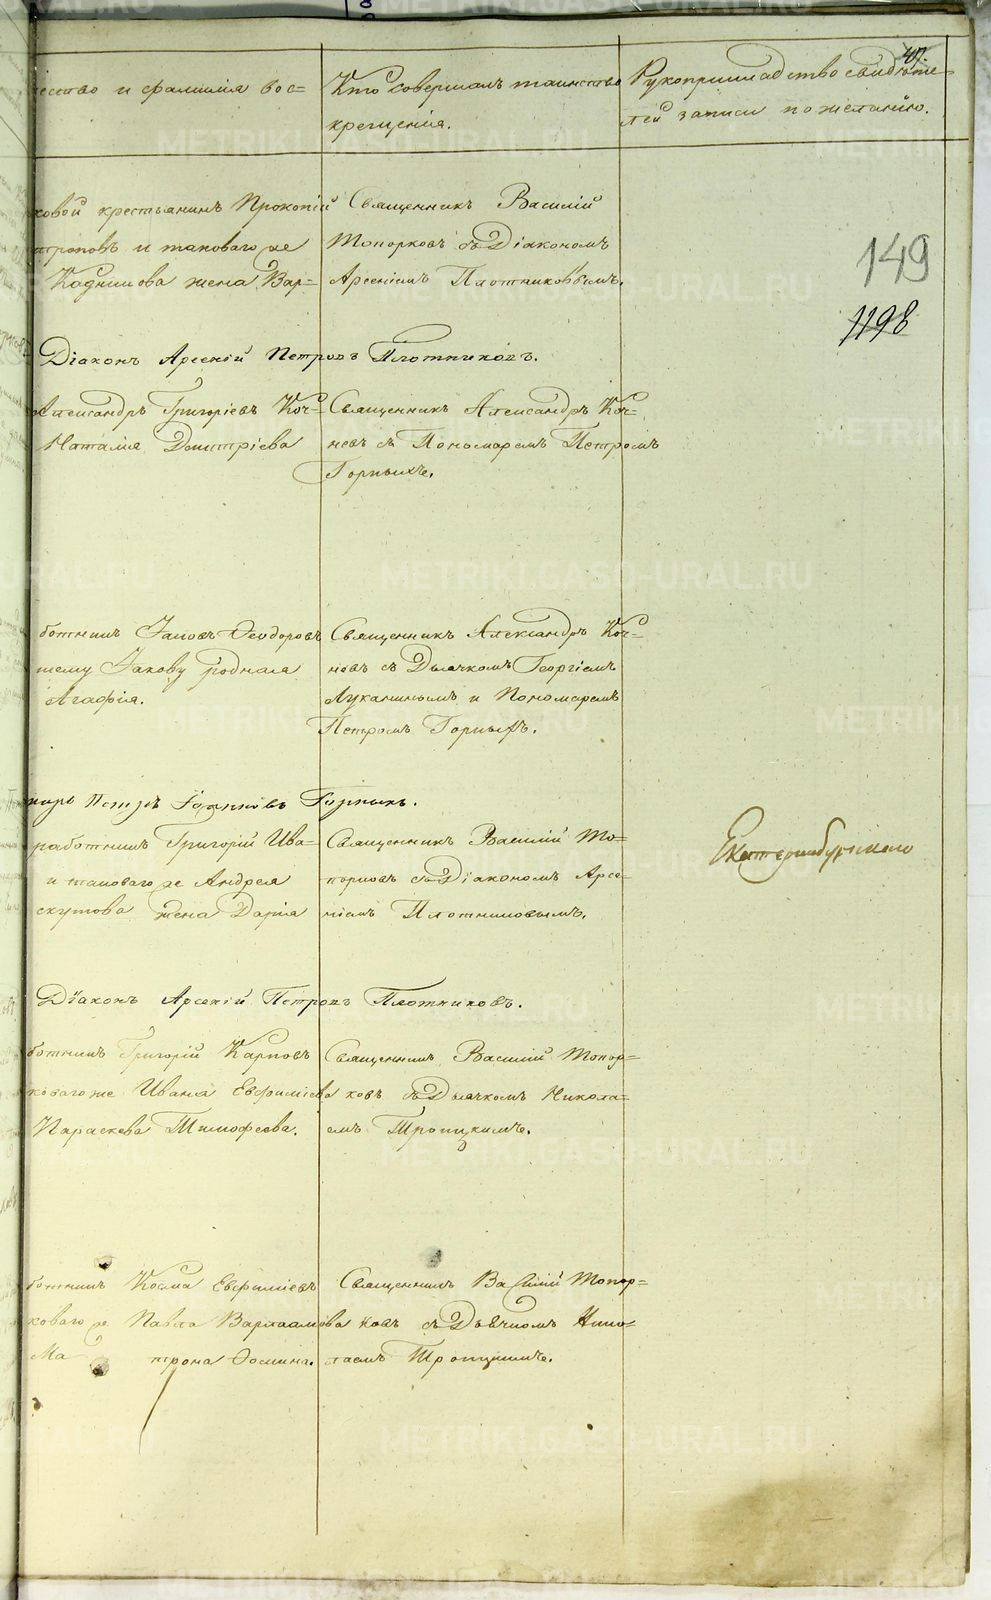 47.
чество и фамилія вос-
Кто совершалъ таинство
крещенія.
Рукоприкладство свидѣте-
лей записи по желанію.
ковой крестьянинъ Прокопій
и таковаго же
жена Вар-
Священникъ Василій
Топорковъ съ Діакономъ
Арсеніемъ Плотниковымъ.
149
1198
Діаконъ Арсеній Петровъ Плотниковъ.
Александръ Григоріевъ Коч-
Наталія Димитріева
Священникъ Александръ Коч-
невъ съ Пономаремъ Петромъ
Горныхъ.
ботникъ Іаковъ Ѳеодоровъ
тему Іакову родная
Агафія.
Священникъ Александръ Коч-
невъ съ Дьячкомъ Георгіемъ
Луканинымъ и Пономаремъ
Петромъ Горныхъ.
марь Петръ Іоанновъ Горныхъ.
работникъ Григорій Ива-
и таковаго же Андрея
скутова жена Дарія
Священникъ Василій То-
порковъ съ Діакономъ Арсе-
ніемъ Плотниковымъ.
Екатеринбургского
Діаконъ Арсеній Петровъ Плотниковъ.
ботникъ Григорій Карповъ
коваго же Ивана Евфиміева
Параскева Тимофеева.
Священникъ Василій Топор-
ковъ съ Дьячкомъ Никола-
емъ Троицкимъ.
ботникъ Косма Евфиміевъ
коваго же Павла Варлаамова
Матрона Фомина.
Священникъ Василій Топор-
ковъ съ Дьячкомъ Нико-
лаемъ Троицкимъ.
METRIKI.GASO-URAL.RU